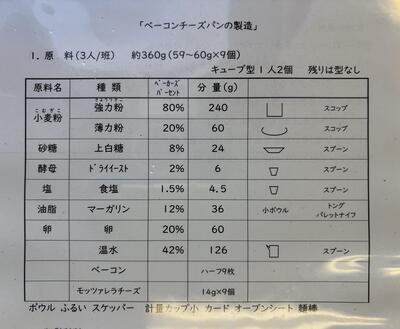 「ベーコンチーズパンの製造」
1. 原　料(3人/班)　約360g(59~60g×9個)
キューブ型 1人2個　残りは型なし
原料名 種　類 ベーカーズパーセント 分　量(g)
小麦粉(こむぎこ) 強力粉(きょうりきこ) 80% 240 スコップ
薄力粉 20% 60 スコップ
砂糖 上白糖 8% 24 スプーン
酵母 ドライイースト 2% 6 スプーン
塩 食塩 1.5% 4.5 スプーン
油脂 マーガリン 12% 36 小ボウル トング パレットナイフ
卵 卵 20% 60
温水 42% 126 スプーン
ベーコン ハーフ9枚
モッツァレラチーズ 14g×9個
ボウル ふるい スケッパー 計量カップ小 カード オーブンシート 麺棒